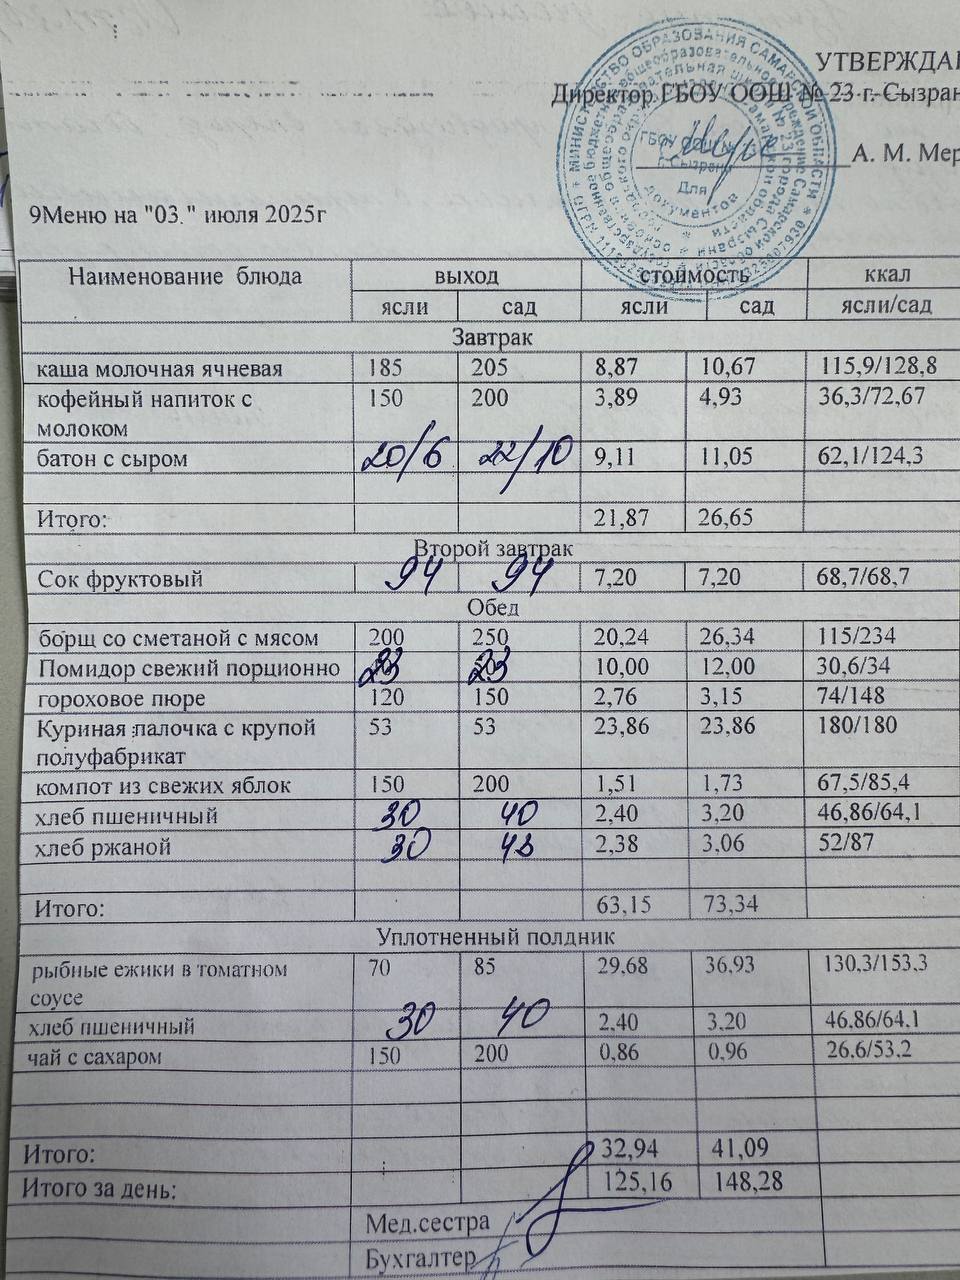 УТВЕРЖДАЮ
Директор ГБОУ ООШ № 23 г. Сызран
А. М. Мер
МИНИСТЕРСТВО ОБРАЗОВАНИЯ САМАРСКОЙ ОБЛАСТИ
ГБОУ ООШ №
г. Сызрани
Для
документов
9Меню на "03." июля 2025г
Наименование блюда выход стоимость ккал
ясли сад ясли сад ясли/сад
Завтрак
каша молочная ячневая 185 205 8,87 10,67 115,9/128,8
кофейный напиток с 150 200 3,89 4,93 36,3/72,67
молоком
батон с сыром 20/6 22/10 9,11 11,05 62,1/124,3
Итого: 21,87 26,65
Второй завтрак
Сок фруктовый 94 94 7,20 7,20 68,7/68,7
Обед
борщ со сметаной с мясом 200 250 20,24 26,34 115/234
Помидор свежий порционно 23 23 10,00 12,00 30,6/34
гороховое пюре 120 150 2,76 3,15 74/148
Куриная палочка с крупой 53 53 23,86 23,86 180/180
полуфабрикат
компот из свежих яблок 150 200 1,51 1,73 67,5/85,4
хлеб пшеничный 30 40 2,40 3,20 46,86/64,1
хлеб ржаной 30 43 2,38 3,06 52/87
Итого: 63,15 73,34
Уплотненный полдник
рыбные ежики в томатном 70 85 29,68 36,93 130,3/153,3
соусе
хлеб пшеничный 30 40 2,40 3,20 46,86/64,1
чай с сахаром 150 200 0,86 0,96 26,6/53,2
Итого: 32,94 41,09
Итого за день: 125,16 148,28
Мед.сестра
Бухгалтер